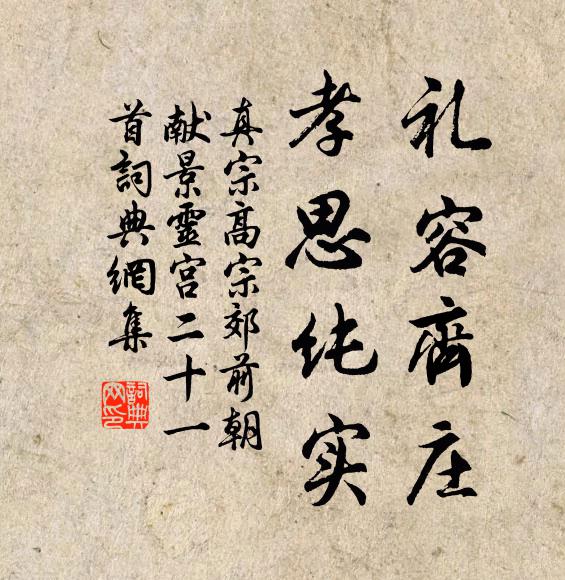 礼容齊庄
孝思纯实
真宗高宗郊前朝
献景靈宫二十一
首詞典網集
詞典网印